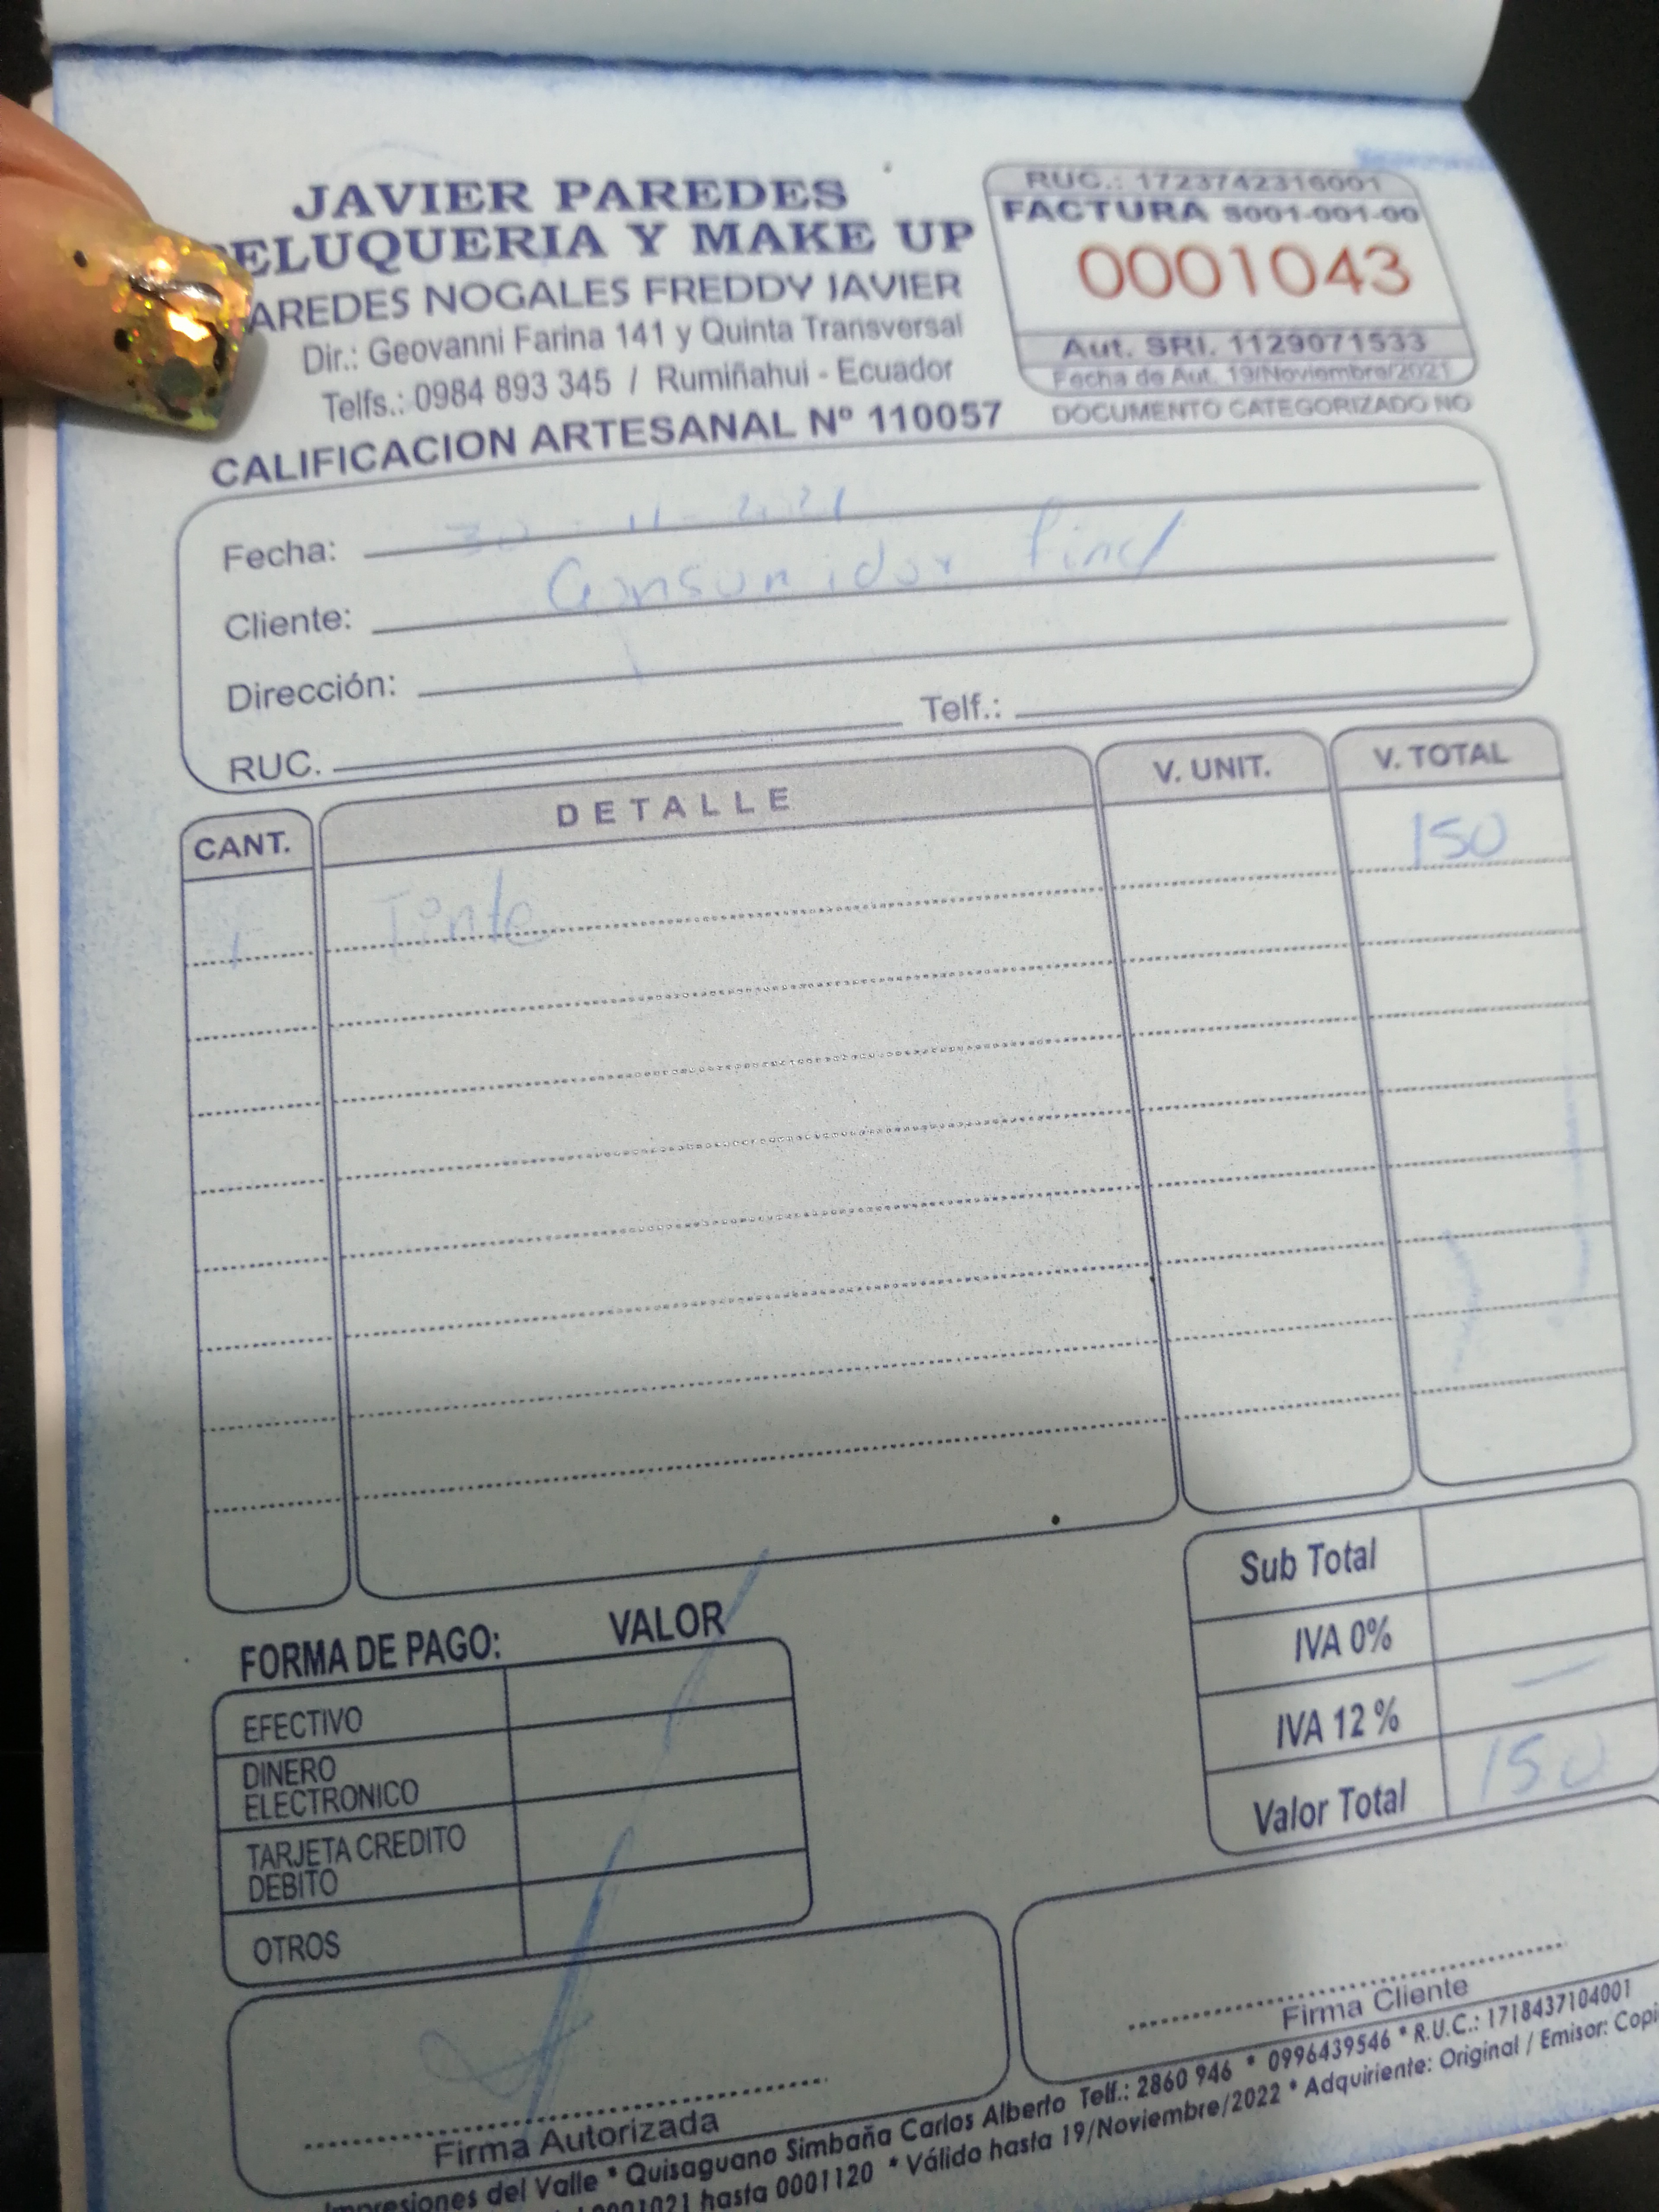 JAVIER PAREDES
ELUQUERIA Y MAKE UP
AREDES NOGALES FREDDY JAVIER
Dir.: Geovanni Farina 141 y Quinta Transversal
Telfs.: 0984 893 345 / Rumiñahui - Ecuador
CALIFICACION ARTESANAL Nº 110057
RUC.: 1723742316001
FACTURA S001-001-00
0001043
Aut. SRI. 1129071533
Fecha de Aut. 19/Noviembre/2021
DOCUMENTO CATEGORIZADO NO
Fecha: 30 - 11 - 2021
Cliente: Consumidor final
Dirección:
RUC. Telf.:
CANT. DETALLE V. UNIT. V. TOTAL
1 Tinte 150
Sub Total
IVA 0%
IVA 12 % —
Valor Total 150
FORMA DE PAGO: VALOR
EFECTIVO
DINERO
ELECTRONICO
TARJETA CREDITO
DEBITO
OTROS
Firma Autorizada
Firma Cliente
Impresiones del Valle * Quisaguano Simbaña Carlos Alberto Telf.: 2860 946 * 0996439546 * R.U.C.: 1718437104001
0001021 hasta 0001120 * Válido hasta 19/Noviembre/2022 * Adquiriente: Original / Emisor: Copi